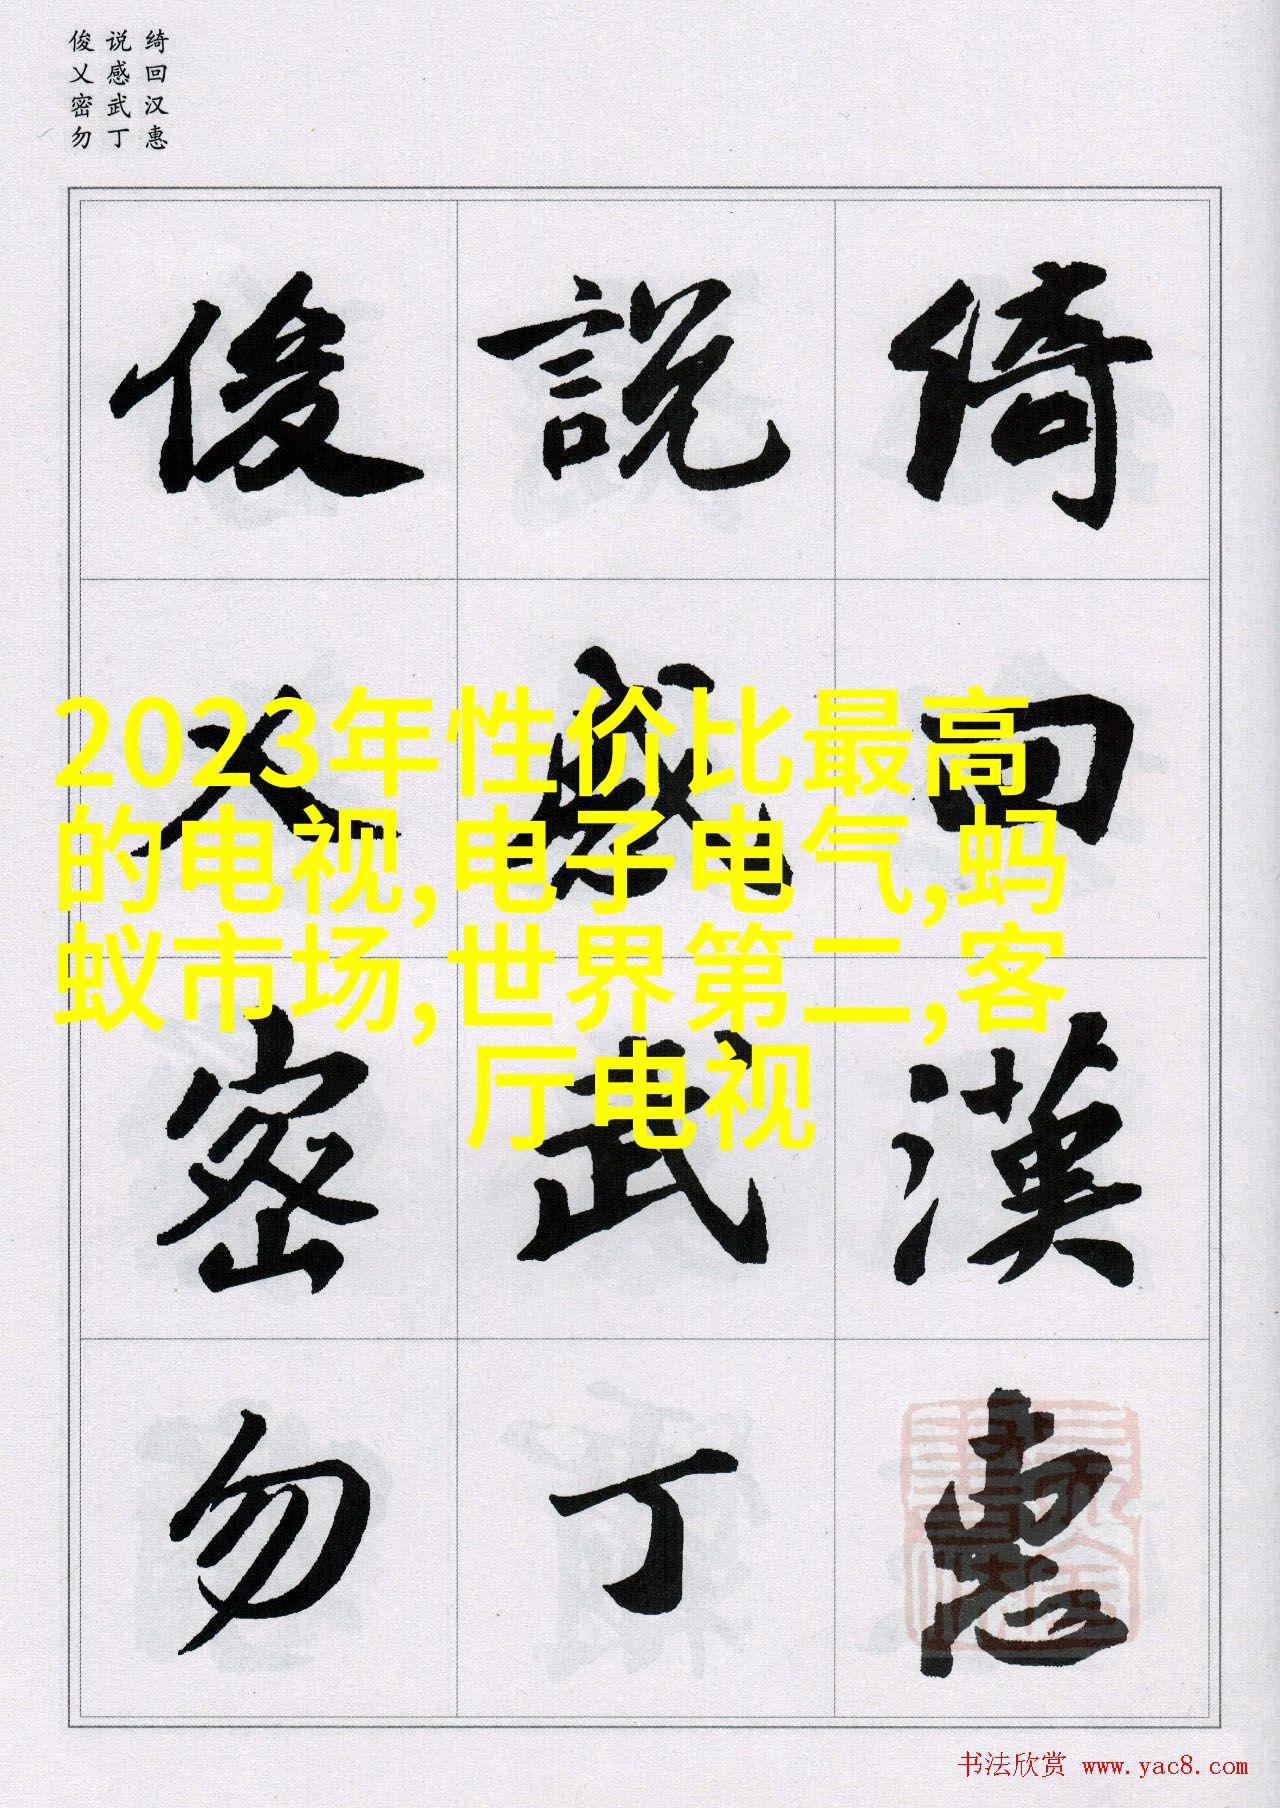 绮回汉惠
说感武丁
俊乂密勿
綺回漢惠
説感武丁
俊乂密勿
2023年性价比最高
的电视,电子电气,蚂
蚁市场,世界第二,客
厅电视
书法欣赏 www.yac8.com